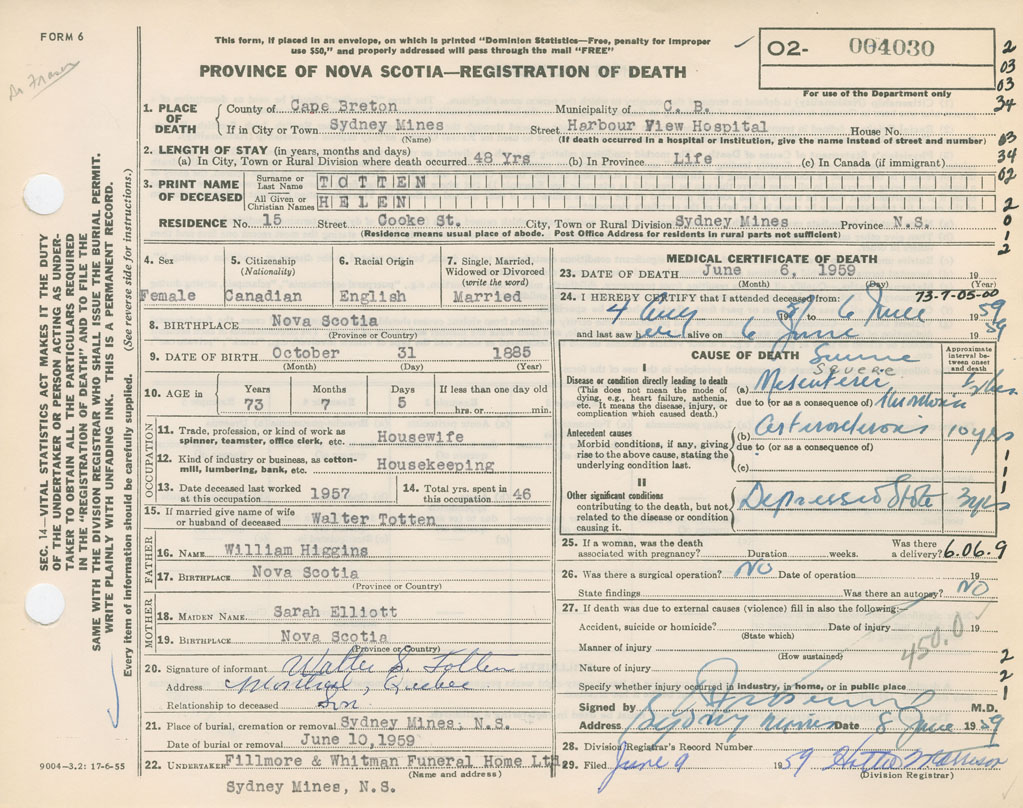 FORM 6
This form, if placed in an envelope, on which is printed "Dominion Statistics—Free, penalty for improper
use $50," and properly addressed will pass through the mail "FREE"
O2- 004030
For use of the Department only
PROVINCE OF NOVA SCOTIA—REGISTRATION OF DEATH
2
03
03
34
03
34
02
2
0
1
2
Dr Fraser
SEC. 14—VITAL STATISTICS ACT MAKES IT THE DUTY
OF THE UNDERTAKER OR PERSON ACTING AS UNDER-
TAKER TO OBTAIN ALL THE PARTICULARS REQUIRED
IN THE "REGISTRATION OF DEATH" AND TO FILE THE
SAME WITH THE DIVISION REGISTRAR WHO SHALL ISSUE THE BURIAL PERMIT.
WRITE PLAINLY WITH UNFADING INK. THIS IS A PERMANENT RECORD.
Every item of information should be carefully supplied. (See reverse side for instructions.)
1. PLACE OF DEATH
County of Cape Breton Municipality of C. B.
If in City or Town Sydney Mines Street Harbour View Hospital House No.
(Name) (If death occurred in a hospital or institution, give the name instead of street and number)
2. LENGTH OF STAY (in years, months and days)
(a) In City, Town or Rural Division where death occurred 48 Yrs (b) In Province Life (c) In Canada (if immigrant)
3. PRINT NAME OF DECEASED
Surname or Last Name TOTTEN
All Given or Christian Names HELEN
RESIDENCE No. 15 Street Cooke St. City, Town or Rural Division Sydney Mines Province N.S.
(Residence means usual place of abode. Post Office Address for residents in rural parts not sufficient)
4. Sex
Female
5. Citizenship
(Nationality)
Canadian
6. Racial Origin
English
7. Single, Married,
Widowed or Divorced
(write the word)
Married
8. BIRTHPLACE Nova Scotia
(Province or Country)
9. DATE OF BIRTH October 31 1885
(Month) (Day) (Year)
10. AGE in
Years Months Days If less than one day old
73 7 5 hrs. or min.
OCCUPATION
11. Trade, profession, or kind of work as
spinner, teamster, office clerk, etc. Housewife
12. Kind of industry or business, as cotton-
mill, lumbering, bank, etc. Housekeeping
13. Date deceased last worked
at this occupation 1957
14. Total yrs. spent in
this occupation 46
15. If married give name of wife
or husband of deceased Walter Totten
FATHER
16. NAME William Higgins
17. BIRTHPLACE Nova Scotia
(Province or Country)
MOTHER
18. MAIDEN NAME Sarah Elliott
19. BIRTHPLACE Nova Scotia
(Province or Country)
20. Signature of informant Walter S. Totten
Address Montreal, Quebec
Relationship to deceased Son
21. Place of burial, cremation or removal Sydney Mines, N.S.
Date of burial or removal June 10, 1959
22. UNDERTAKER Fillmore & Whitman Funeral Home Ltd
(Name and address)
Sydney Mines, N.S.
9004—3.2: 17-6-55
MEDICAL CERTIFICATE OF DEATH
23. DATE OF DEATH June 6, 1959 19
(Month) (Day) (Year)
24. I HEREBY CERTIFY that I attended deceased from: 73-7-05-00
4 19 6 June 1959
and last saw her alive on 6 June 59
CAUSE OF DEATH
Approximate
interval be-
tween onset
and death
I
Disease or condition directly leading to death
(This does not mean the mode of
dying, e.g., heart failure, asthenia,
etc. It means the disease, injury, or
complication which caused death.)
Severe
(a) Mesenteric
due to (or as a consequence of)
Antecedent causes
Morbid conditions, if any, giving
rise to the above cause, stating the
underlying condition last.
(b) 10 yrs
due to (or as a consequence of)
(c)
II
Other significant conditions
contributing to the death, but not
related to the disease or condition
causing it.
Depressive State 3 yrs
1
1
1
1
25. If a woman, was the death
associated with pregnancy? Duration weeks. Was there
a delivery? 6.06.9
26. Was there a surgical operation? NO Date of operation 19
State findings Was there an autopsy? NO
27. If death was due to external causes (violence) fill in also the following:—
Accident, suicide or homicide? Date of injury 19
(State which)
Manner of injury
(How sustained)
450.0
Nature of injury
Specify whether injury occurred in industry, in home, or in public place
2
2
1
Signed by M.D.
Address Sydney Mines Date 8 June 1959
28. Division Registrar's Record Number
29. Filed June 9 1959
(Division Registrar)